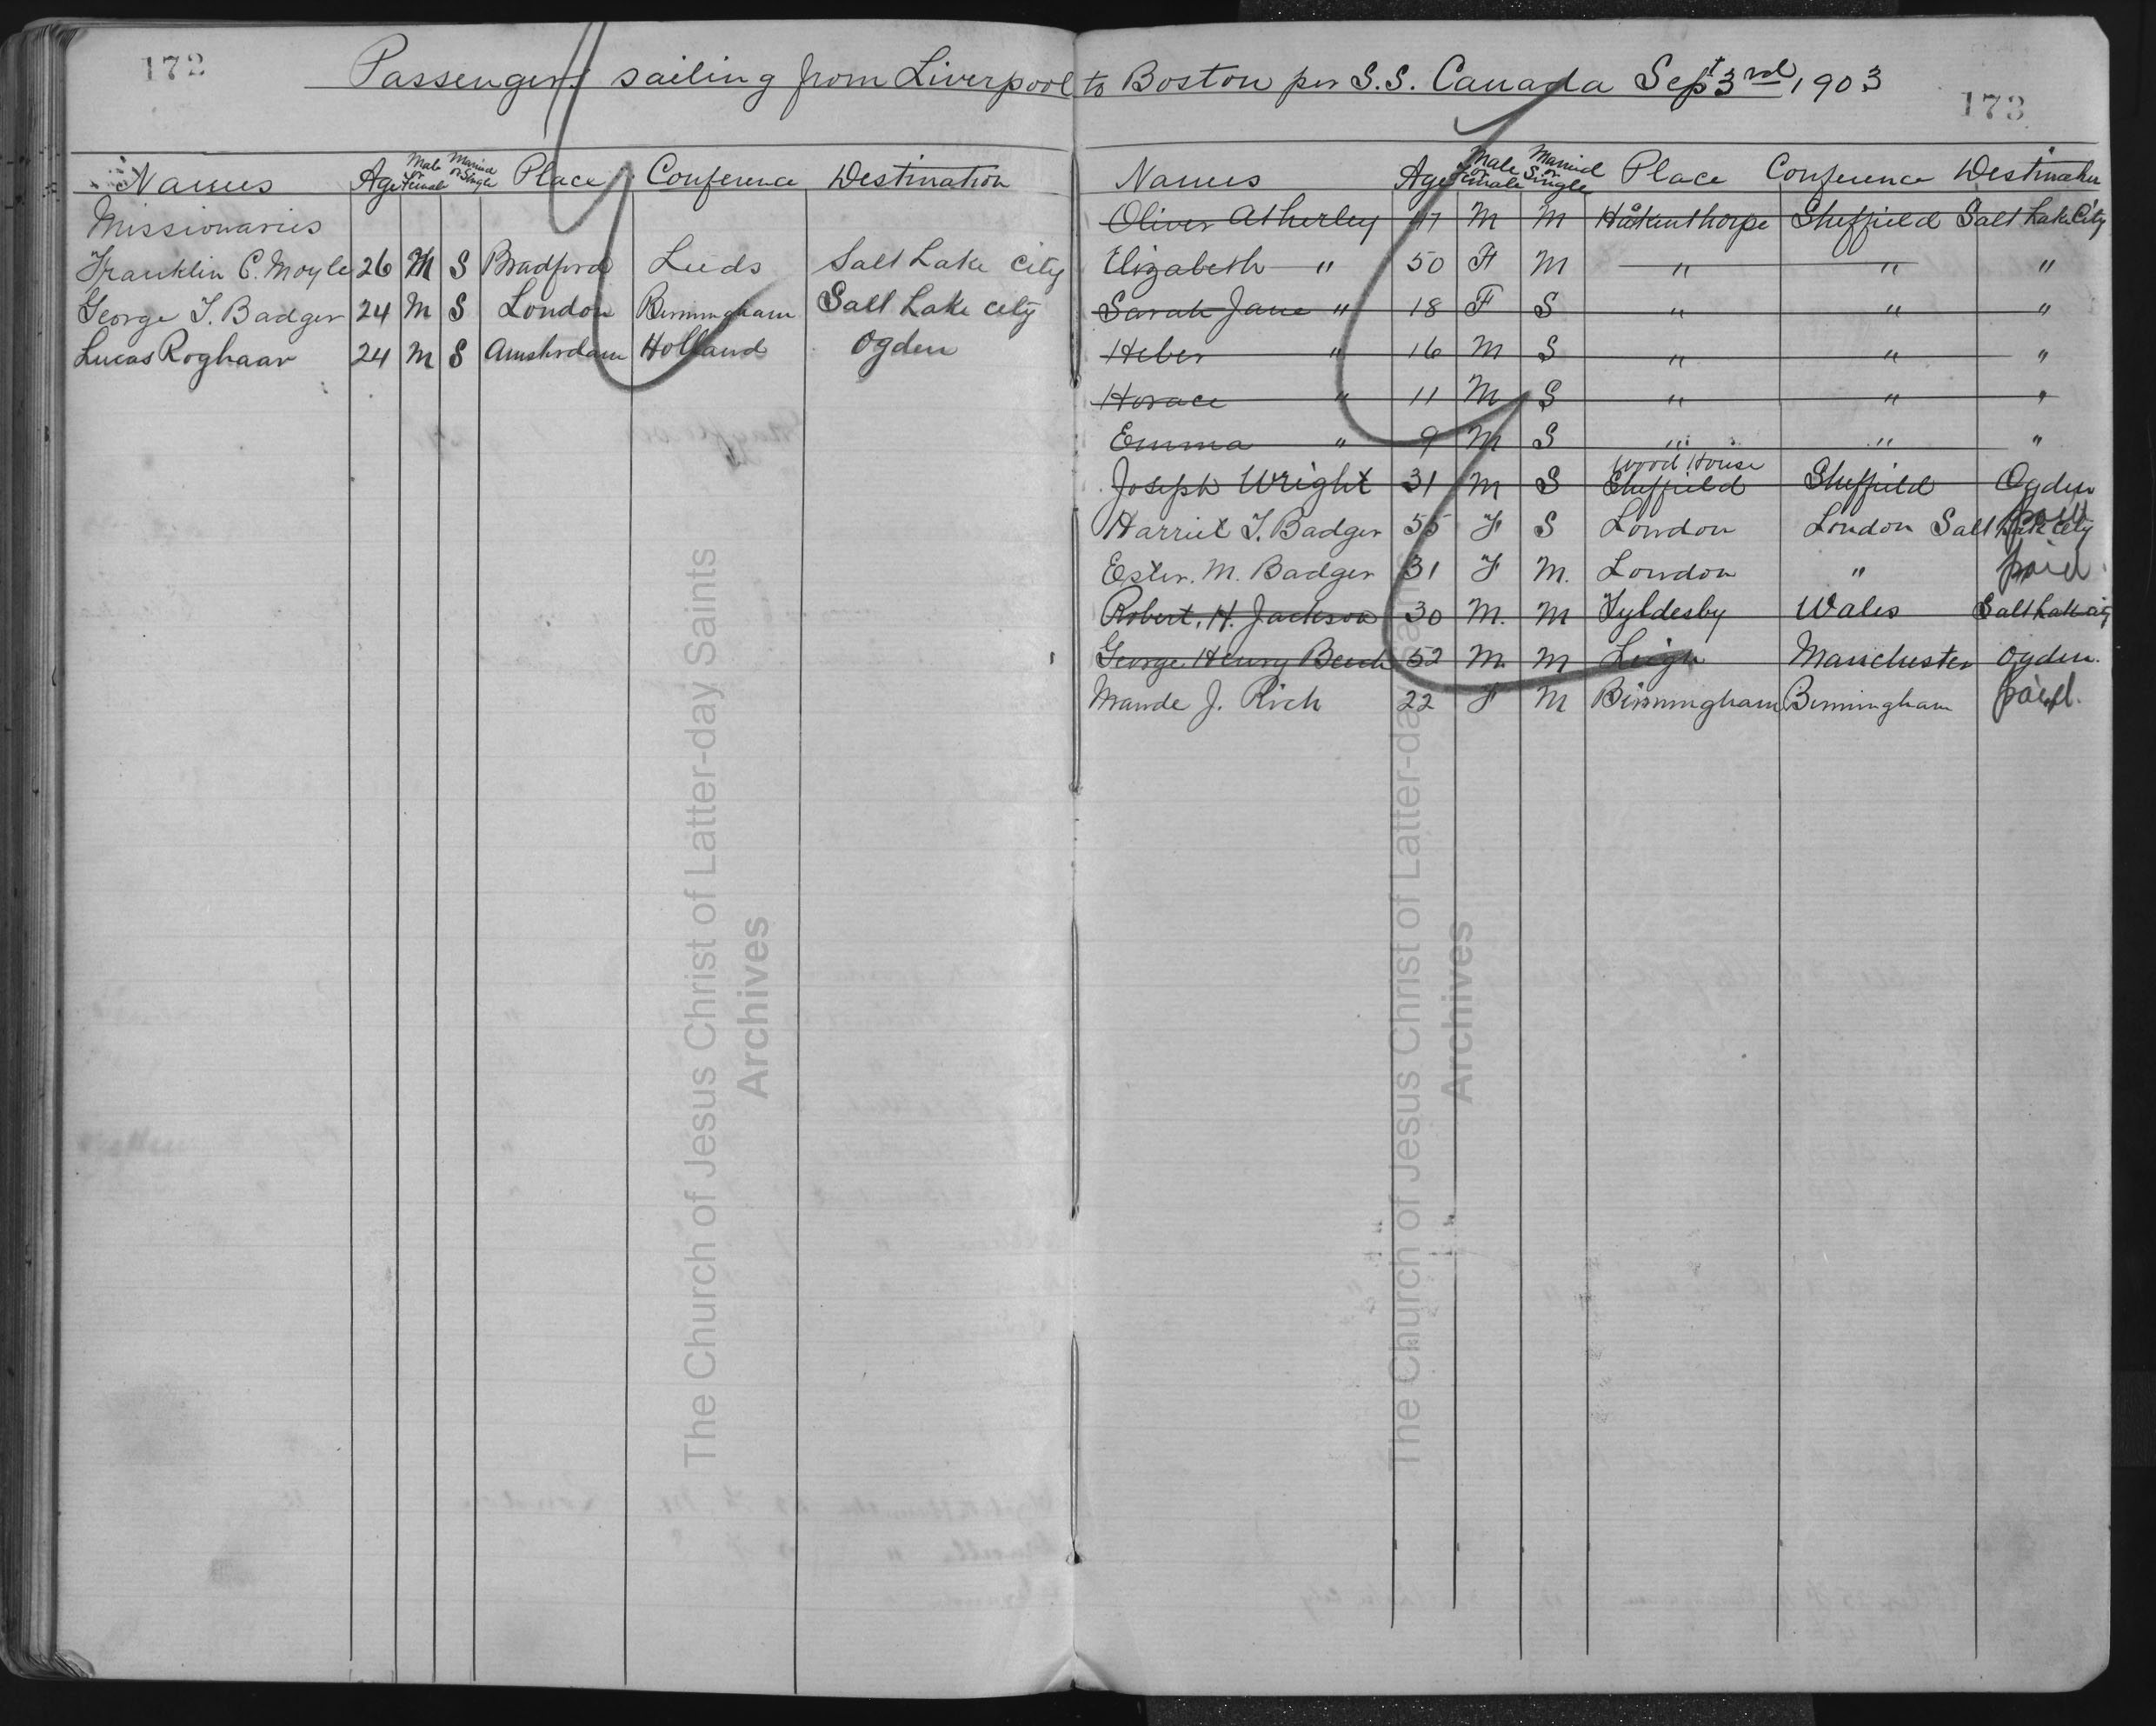 172
Passengers sailing from Liverpool to Boston per S.S. Canada Sept 3rd 1903
173
Names Age Male or Female Married or Single Place Conference Destination
Missionaries
Franklin C. Moyle 26 M S Bradford Leeds Salt Lake City
George T. Badger 24 M S London Birmingham Salt Lake City
Lucas Roghaar 24 M S Amsterdam Holland Ogden
Names Age Male or Female Married or Single Place Conference Destination
Oliver Atherley 47 M M Hakenthorpe Sheffield Salt Lake City
Elizabeth " 50 F M " " "
Sarah Jane " 18 F S " " "
Heber " 16 M S " " "
Horace " 11 M S " " "
Emma " 9 M S " " "
Wood House
Joseph Wright 31 M S Sheffield Sheffield Ogden
Harriet T. Badger 55 F S London London Salt Lake City paid
Ester. M. Badger 31 F M. London " paid
Robert. H. Jackson 30 M. M Tyldesby Wales Salt Lake City
George Henry Beech 52 M. M Leigh Manchester Ogden.
Maude J. Rich 22 F M Birmingham Birmingham paid.
The Church of Jesus Christ of Latter-day Saints
Archives
The Church of Jesus Christ of Latter-day Saints
Archives